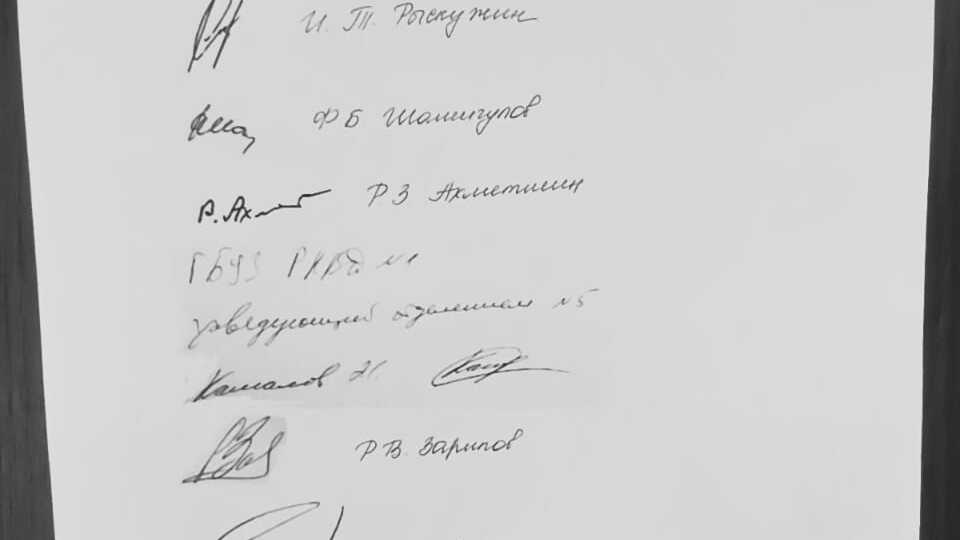 И. Т. Рыскужин
Ф Б Шамигулов
Р. Ахмет Р З Ахметшин
ГБУЗ РКВД №1
заведующий отделением №5
Хамалов Н.
Р В. Зарипов